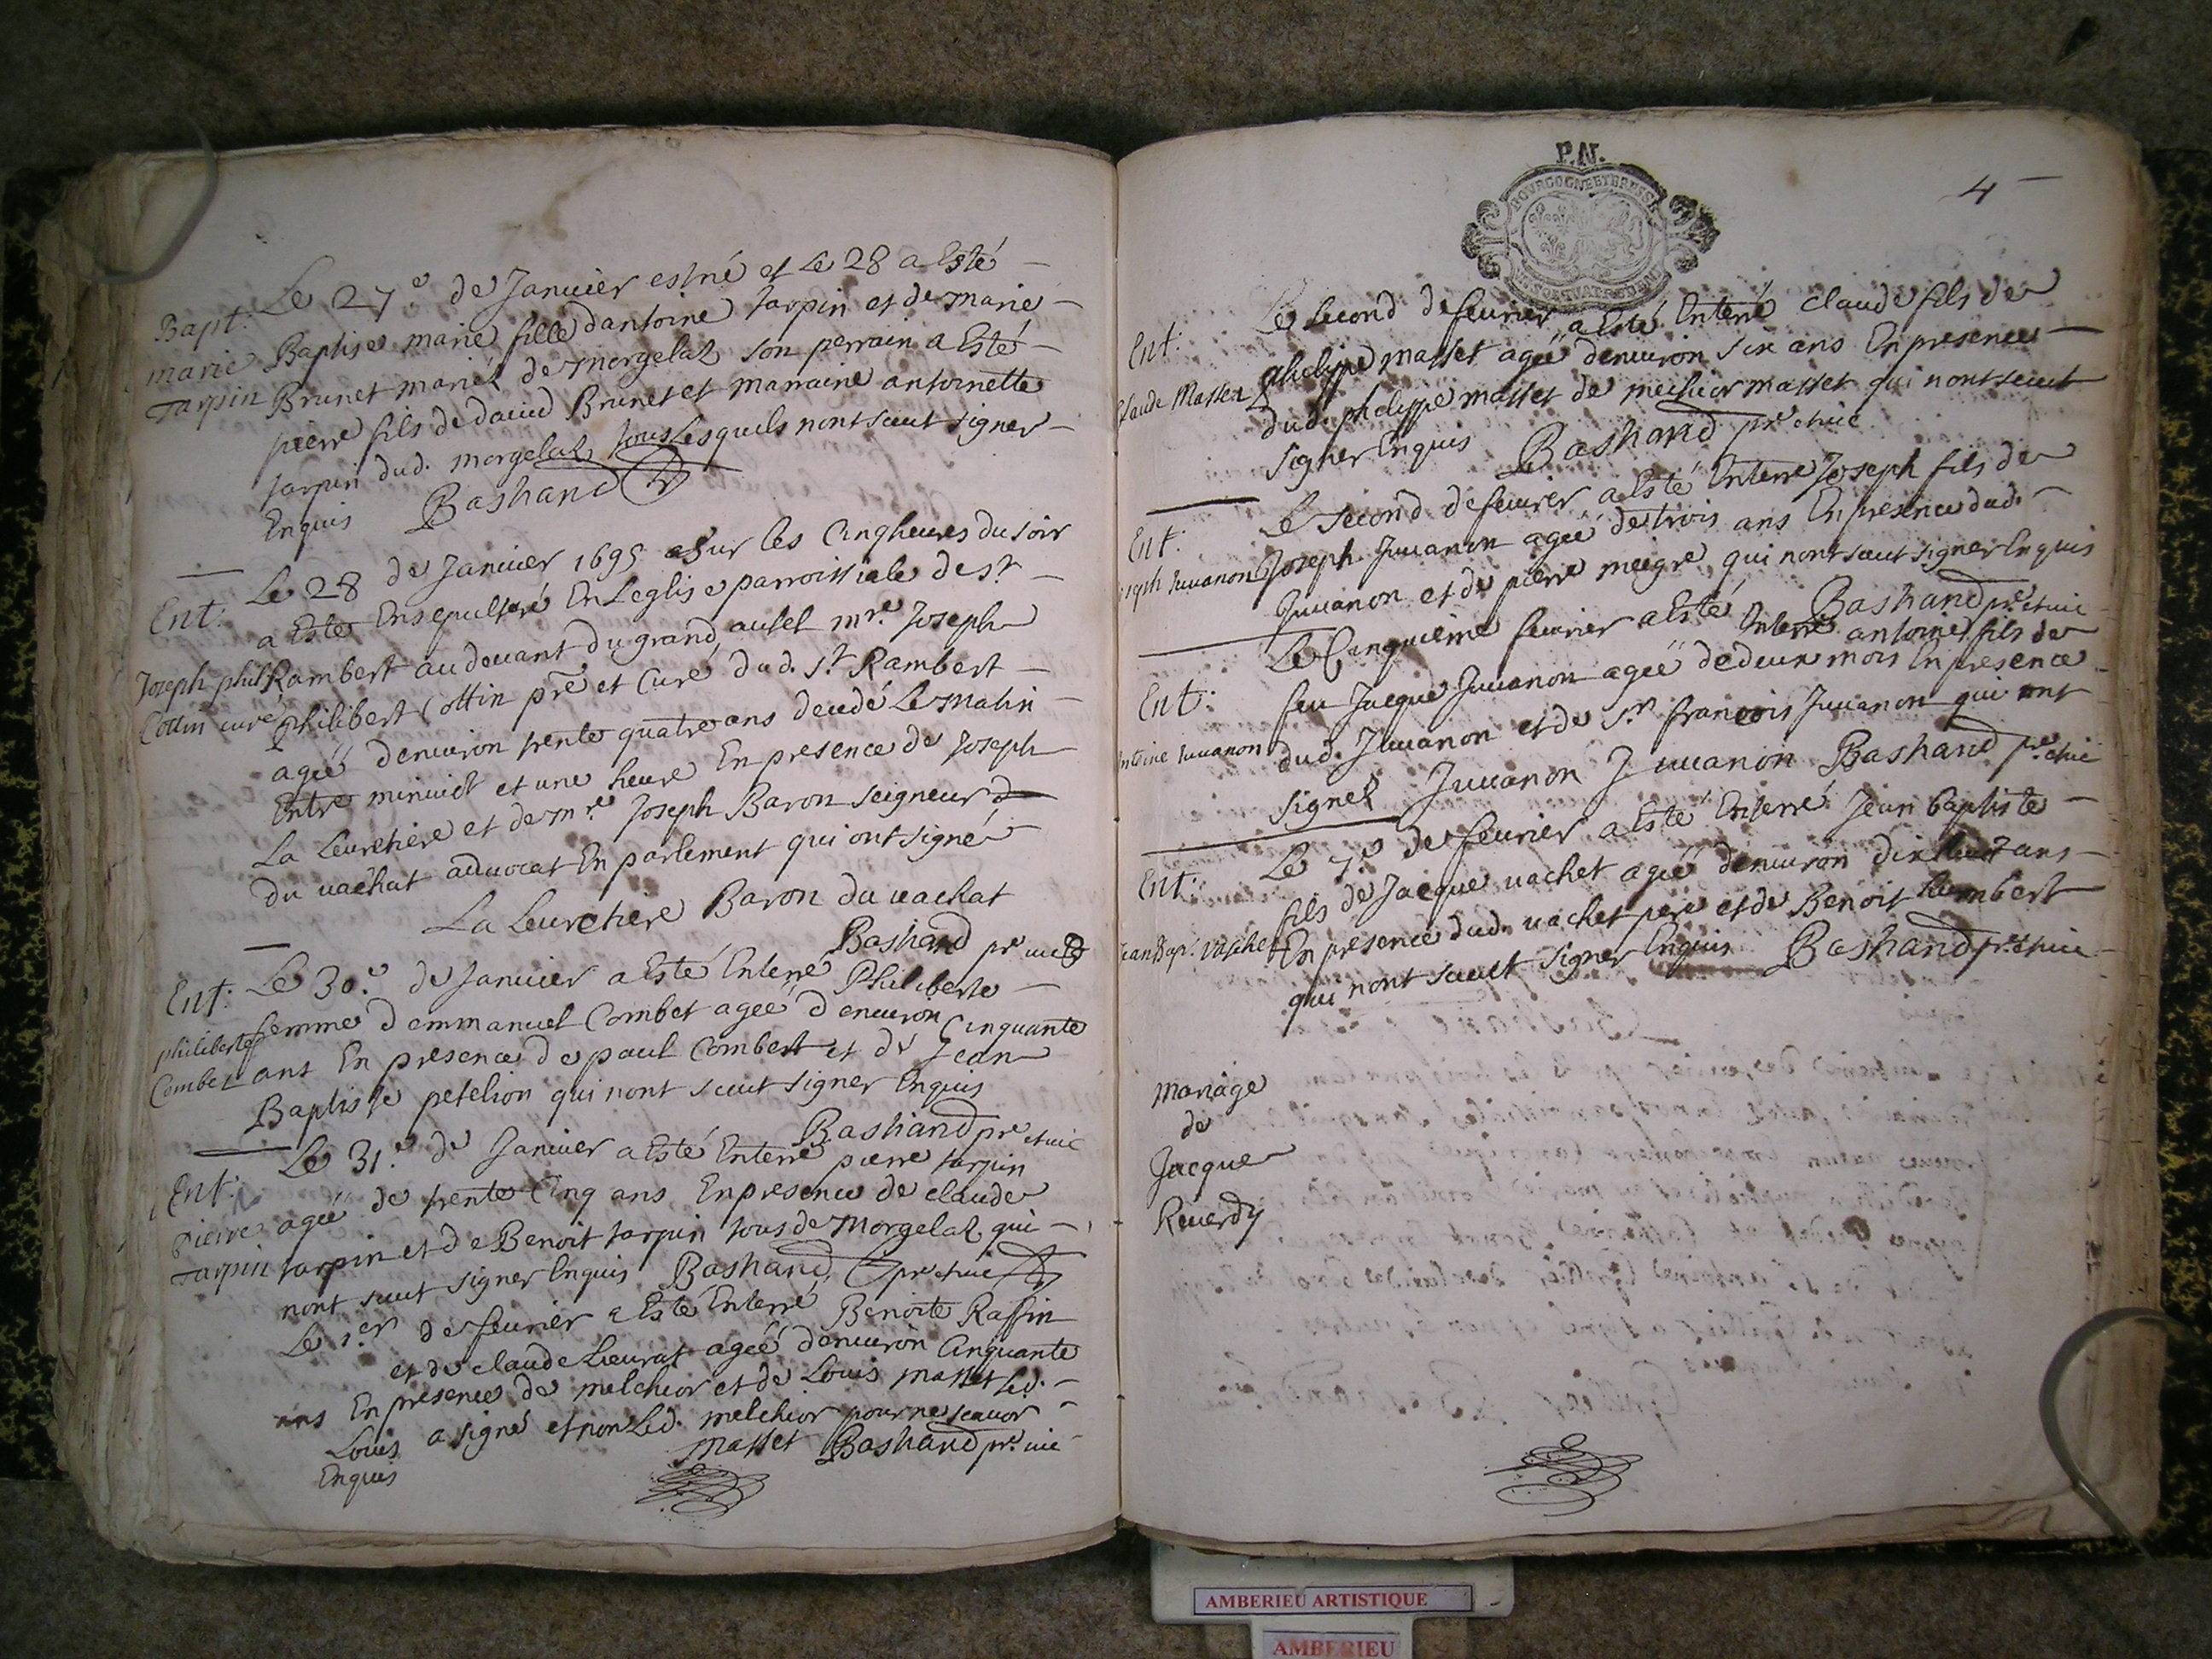 Bapt. Le 27e de Janvier est né et Le 28 a Esté
marie Baptisée marie fille dantoine tarpin et de marie
Tarpin Brunet mariéz de morgelaz son perrain a Esté
pierre fils de david Brunet et marraine antoinette
tarpin dud. morgelaz tous Lesquels nont sceut signer
Enquis Bashand
Ent. Le 28 de Janvier 1695 a sur les Cinq heures du soir
a Esté Ensepulturé En Leglise parroissiale de st
Joseph phil. Rambert au devant du grand autel mre. Joseph
Cottin curé philibert Cottin pre et Curé dud. st Rambert
agée denviron trente quatre ans decedé Le matin
Entre minuict et une heure En presence de Joseph
La Leuretiere et de mre. Joseph Baron seigneur
du vachat advocat En parlement qui ont signé
La Leuretiere Baron du vachat
Bashand pre vic
Ent. Le 30e de Janvier a Esté Enterré Philiberte
philiberte femme demmanuel Combet agée denviron Cinquante
Combet ans En presence de paul Combet et de Jean
Baptiste petelion qui nont sceut signer Enquis
Bashand pre et vic
Ent. Le 31e de Janvier a Esté Enterré pierre tarpin
pierre agée de trente Cinq ans En presence de claude
Tarpin tarpin et de Benoit tarpin tous de Morgelaz qui
nont sceut signer Enquis Bashand pre et vic
Le 1er de fevrier a Esté Enterré Benoite Raffin
et de claude Lieurat agée denviron Cinquante
ans En presence de melchior et de Louis masset Led.
Louis a signé et non Led. melchior pour ne scavoir
Enquis masset Bashand pre. vic
P.N.
BOURGOGNE ET BRESSE
4
Ent. Le second de fevrier a Esté Enterré claude fils de
Claude Masset phelippe masset agée denviron six ans En presence
dud. phelippe masset de melchior masset qui nont sceut
signer Enquis Bashand pre et vic
Ent. Le second de fevrier a Esté Enterré Joseph fils de
Joseph Juvanon Joseph Juvanon agée de trois ans En presence dud.
Juvanon et de pierre meigre qui nont sceut signer Enquis
Bashand pre et vic
Ent. Le Cinquieme fevrier a Esté Enterré antoine fils de
feu Jacque Juvanon agée de deux mois En presence
Antoine Juvanon dud. Juvanon et de sr. francois Juvanon qui ont
signez Juvanon Juvanon Bashand pre et vic
Ent. Le 7e de fevrier a Esté Enterré Jean baptiste
fils de Jacque vachet agée denviron dix huit ans
Jean Bapt. vachet En presence dud. vachet pere et de Benoit humbert
qui nont sceut signer Enquis Bashand pre. et vic
Mariage
de
Jacque
Reverdy
AMBERIEU ARTISTIQUE
AMBERIEU